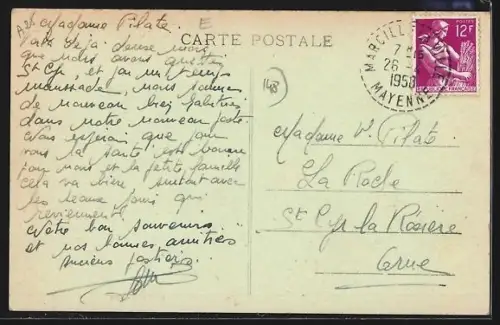 A28
E
CARTE POSTALE
Madame Pilate.
Voilà déjà deux mois
que nous avons quitté
St Cyr, et j'ai
maussade, nous sommes
de nouveau bien
dans notre nouveau poste
Nous espérons que pour
vous la santé est bonne
pour nous et la petite famille
cela va bien, surtout avec
les beaux jours qui
reviennent.
Notre bon souvenir
et nos bonnes amitiés
anciens postiers.
148
MARCILLÉ
7 H
26
1958
MAYENNE
POSTES
12F
Madame Vve Pilate
La Roche
St Cyr la Rosière
Orne